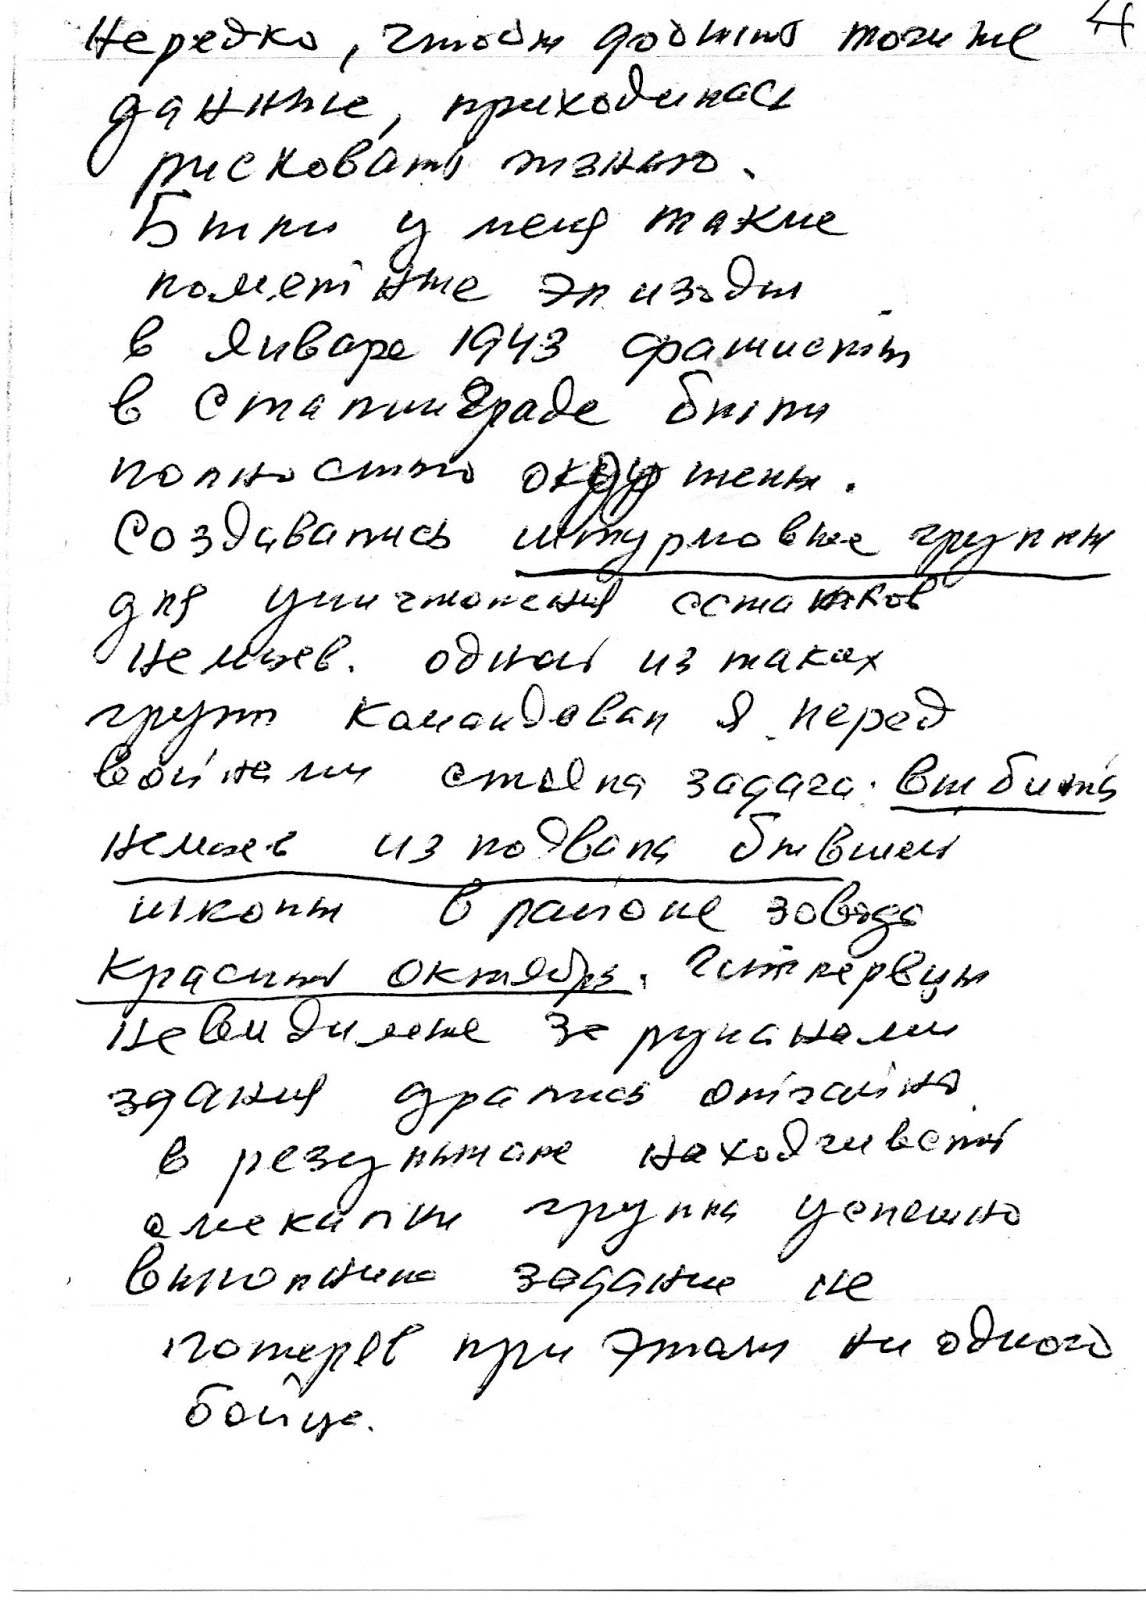 Нередко, чтобы добыть точные 4
данные, приходилась
рисковать жизнью.
Были у меня такие
паметные эпизоды
в Январе 1943 фашисты
в Сталинграде были
полностью окружены.
Создавались штурмовые группы
для уничтожения остатков
немцев. одной из таких
групп командовал я перед
войнами стояла задача. выбить
немцев из подвала бывшей
школы в районе завода
Красный октябрь. Гитлервцы
невидимые за руинами
здания дрались отчайно
в результате находчивости
смекалки группа успешно
выполнила задание не
потеряв при этом ни одного
бойца.